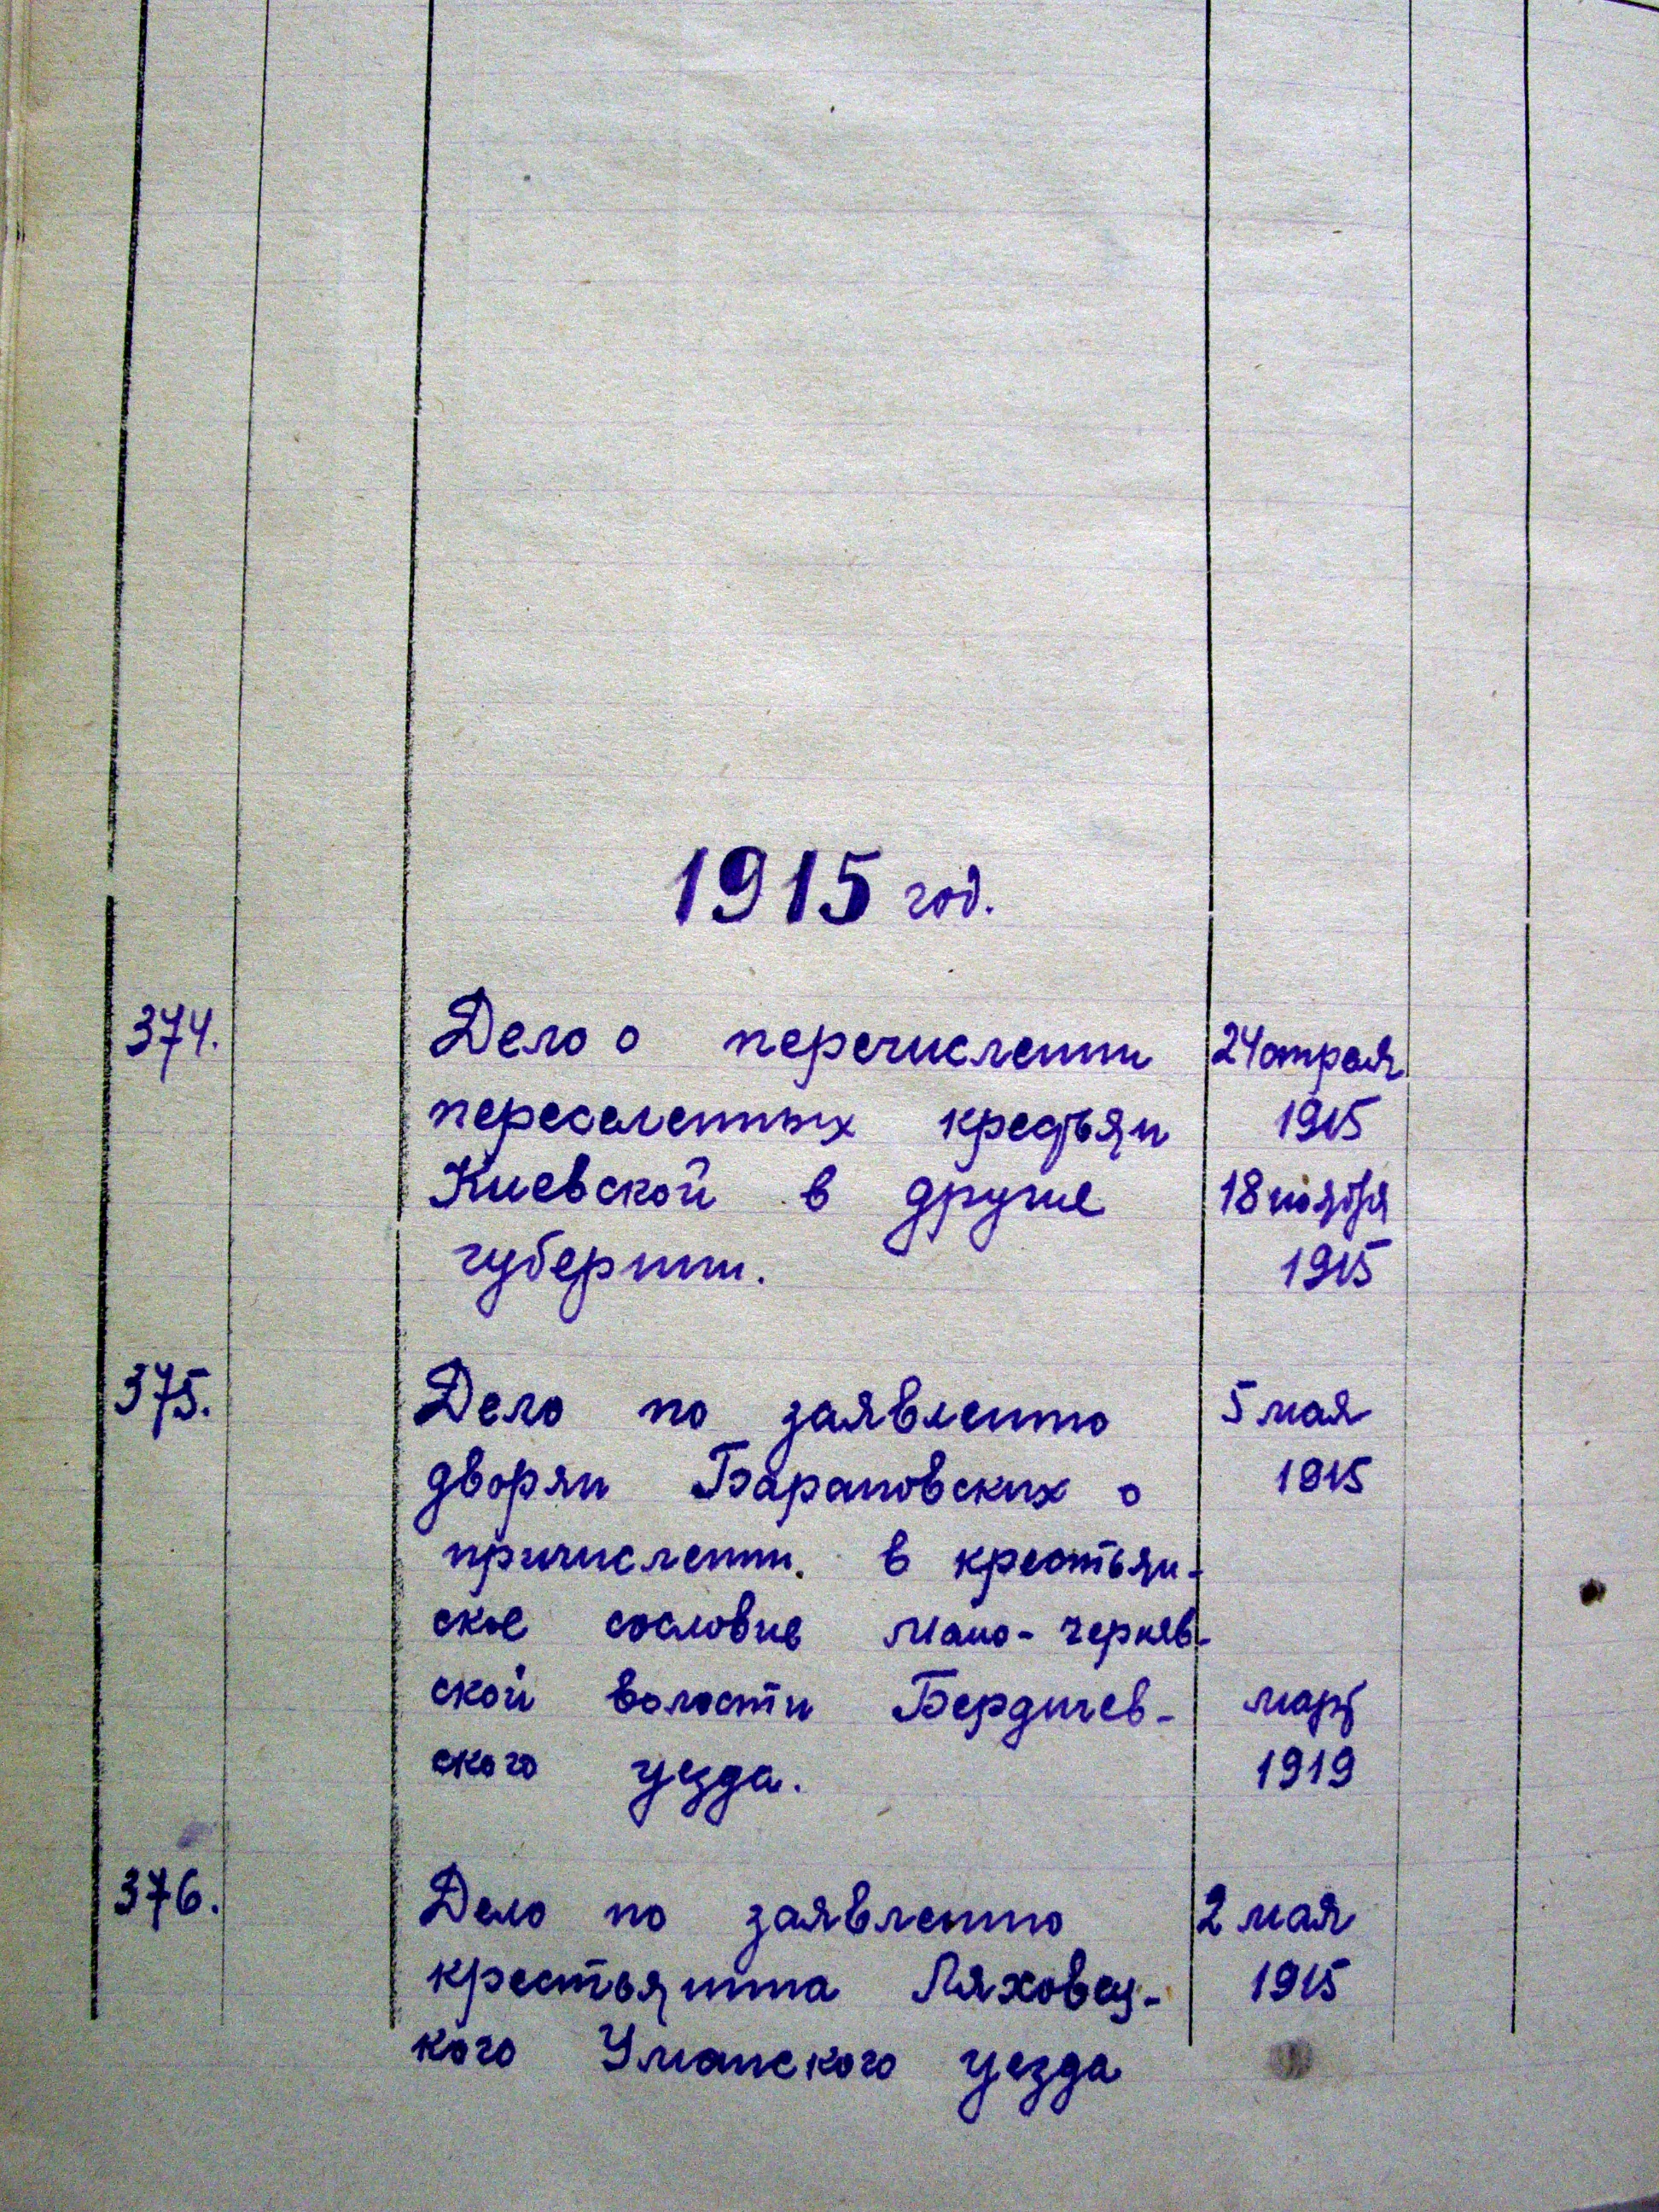 1915 год.
374. Дело о перечислении 24 апреля
переселенных крестьян 1915
Киевской в другие 18 ноября
губернии. 1915
375. Дело по заявлению 5 мая
дворян Барановских о 1915
причислении в крестьян-
ское сословие Мало-черняв-
ской волости Бердичев- март
ского уезда. 1919
376. Дело по заявлению 2 мая
крестьянина Ляховец- 1915
кого Уманского уезда